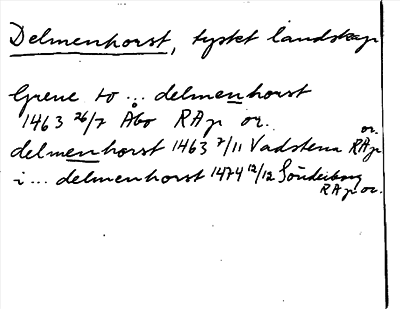 Delmenhorst, tyskt landskap
Greue to ... delmenhorst
1463 26/7 Åbo RAp or.
delmenhorst 1463 7/11 Vadstena RAp or.
i ... delmenhorst 1474 12/12 Sönderborg
RAp or.